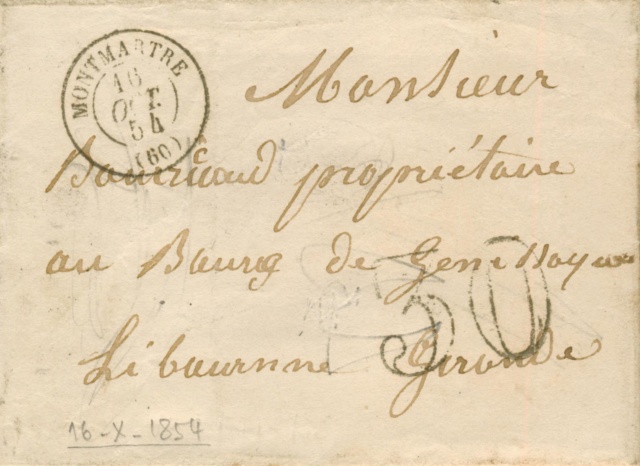 MONTMARTRE
16
OCT.
54
(60)
Monsieur
propriétaire
au Bourg de
30
Libournne Gironde
16-X-1854